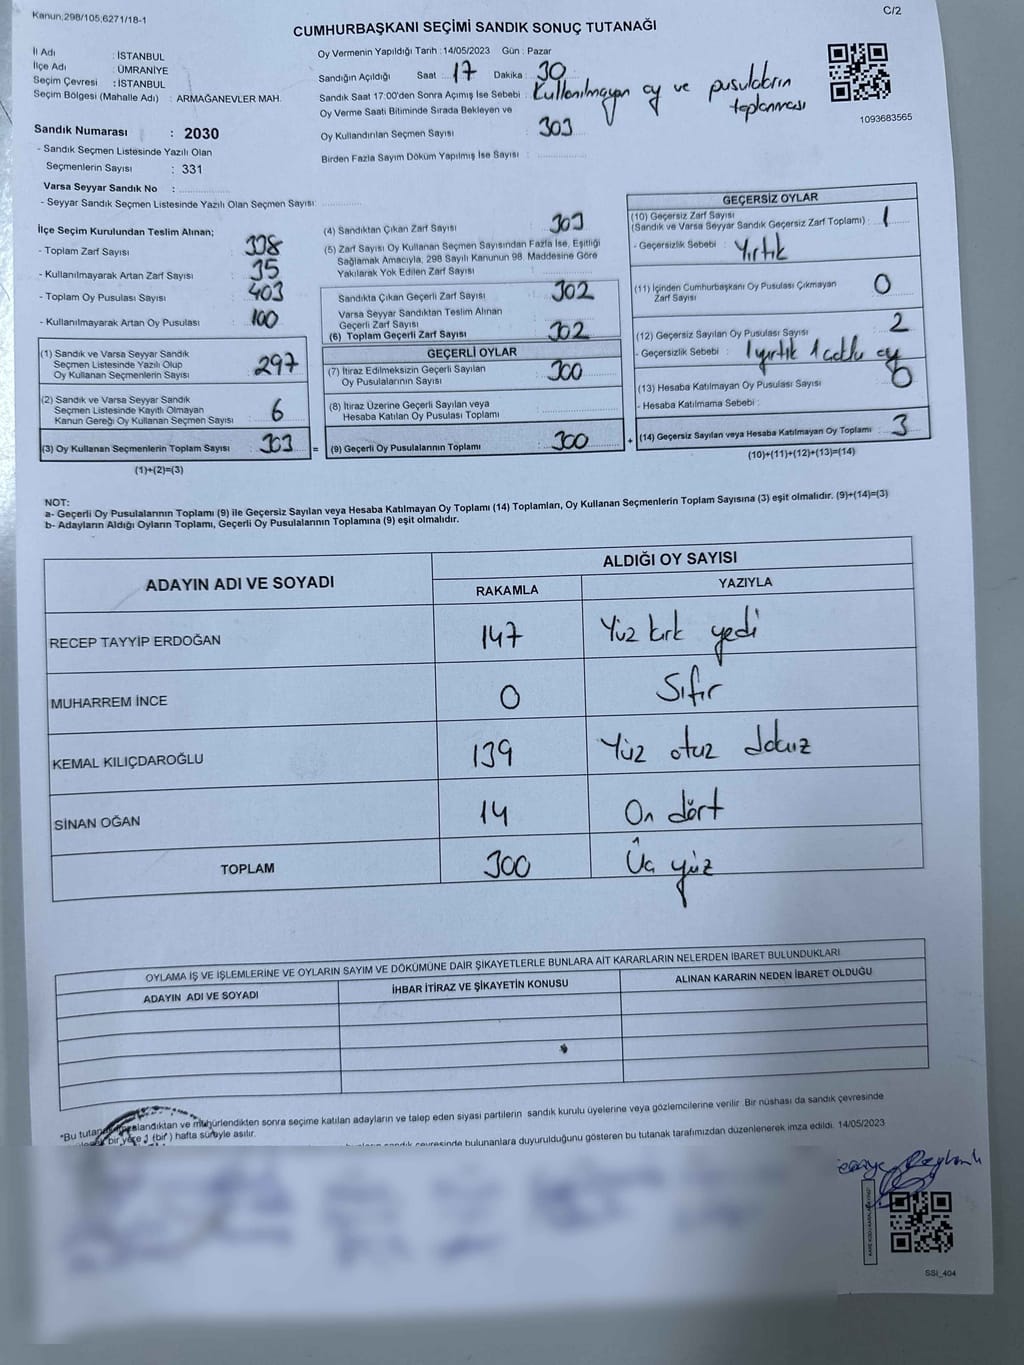 Kanun;298/105,6271/18-1
C/2
CUMHURBAŞKANI SEÇİMİ SANDIK SONUÇ TUTANAĞI
İl Adı : İSTANBUL
İlçe Adı : ÜMRANİYE
Seçim Çevresi : İSTANBUL
Seçim Bölgesi (Mahalle Adı) : ARMAĞANEVLER MAH.
Sandık Numarası : 2030
- Sandık Seçmen Listesinde Yazılı Olan
Seçmenlerin Sayısı : 331
Varsa Seyyar Sandık No :
- Seyyar Sandık Seçmen Listesinde Yazılı Olan Seçmen Sayısı:
Oy Vermenin Yapıldığı Tarih :14/05/2023 Gün : Pazar
Sandığın Açıldığı Saat : 17 Dakika : 30
Sandık Saat 17:00'den Sonra Açımış İse Sebebi : Kullanılmayan oy ve pusulaların toplanması
Oy Verme Saati Bitiminde Sırada Bekleyen ve
Oy Kullandırılan Seçmen Sayısı : 303
Birden Fazla Sayım Döküm Yapılmış İse Sayısı :
1093683565
İlçe Seçim Kurulundan Teslim Alınan;
- Toplam Zarf Sayısı : 338
- Kullanılmayarak Artan Zarf Sayısı : 35
- Toplam Oy Pusulası Sayısı : 403
- Kullanılmayarak Artan Oy Pusulası : 100
(1) Sandık ve Varsa Seyyar Sandık
Seçmen Listesinde Yazılı Olup
Oy Kullanan Seçmenlerin Sayısı : 297
(2) Sandık ve Varsa Seyyar Sandık
Seçmen Listesinde Kayıtlı Olmayan
Kanun Gereği Oy Kullanan Seçmen Sayısı : 6
(3) Oy Kullanan Seçmenlerin Toplam Sayısı : 303 =
(1)+(2)=(3)
(4) Sandıktan Çıkan Zarf Sayısı : 303
(5) Zarf Sayısı Oy Kullanan Seçmen Sayısından Fazla İse, Eşitliği
Sağlamak Amacıyla, 298 Sayılı Kanunun 98. Maddesine Göre
Yakılarak Yok Edilen Zarf Sayısı :
Sandıkta Çıkan Geçerli Zarf Sayısı : 302
Varsa Seyyar Sandıktan Teslim Alınan
Geçerli Zarf Sayısı :
(6) Toplam Geçerli Zarf Sayısı : 302
GEÇERLİ OYLAR
(7) İtiraz Edilmeksizin Geçerli Sayılan
Oy Pusulalarının Sayısı : 300
(8) İtiraz Üzerine Geçerli Sayılan veya
Hesaba Katılan Oy Pusulası Toplamı :
(9) Geçerli Oy Pusulalarının Toplamı : 300 +
GEÇERSİZ OYLAR
(10) Geçersiz Zarf Sayısı
(Sandık ve Varsa Seyyar Sandık Geçersiz Zarf Toplamı) : 1
- Geçersizlik Sebebi : Yırtık
(11) İçinden Cumhurbaşkanı Oy Pusulası Çıkmayan
Zarf Sayısı : 0
(12) Geçersiz Sayılan Oy Pusulası Sayısı : 2
- Geçersizlik Sebebi : 1 yırtık 1 oy
(13) Hesaba Katılmayan Oy Pusulası Sayısı : 0
- Hesaba Katılmama Sebebi :
(14) Geçersiz Sayılan veya Hesaba Katılmayan Oy Toplamı : 3
(10)+(11)+(12)+(13)=(14)
NOT:
a- Geçerli Oy Pusulalarının Toplamı (9) ile Geçersiz Sayılan veya Hesaba Katılmayan Oy Toplamı (14) Toplamları, Oy Kullanan Seçmenlerin Toplam Sayısına (3) eşit olmalıdır. (9)+(14)=(3)
b- Adayların Aldığı Oyların Toplamı, Geçerli Oy Pusulalarının Toplamına (9) eşit olmalıdır.
ADAYIN ADI VE SOYADI
ALDIĞI OY SAYISI
RAKAMLA YAZIYLA
RECEP TAYYİP ERDOĞAN 147 Yüz kırk yedi
MUHARREM İNCE 0 Sıfır
KEMAL KILIÇDAROĞLU 139 Yüz otuz dokuz
SİNAN OĞAN 14 On dört
TOPLAM 300 Üç yüz
OYLAMA İŞ VE İŞLEMLERİNE VE OYLARIN SAYIM VE DÖKÜMÜNE DAİR ŞİKAYETLERLE BUNLARA AİT KARARLARIN NELERDEN İBARET BULUNDUKLARI
ADAYIN ADI VE SOYADI İHBAR İTİRAZ VE ŞİKAYETİN KONUSU ALINAN KARARIN NEDEN İBARET OLDUĞU
*Bu tutanak imzalandıktan ve mühürlendikten sonra seçime katılan adayların ve talep eden siyasi partilerin sandık kurulu üyelerine veya gözlemcilerine verilir. Bir nüshası da sandık çevresinde
bir yere 1 (bir) hafta süreyle asılır.
sandık çevresinde bulunanlara duyurulduğunu gösteren bu tutanak tarafımızdan düzenlenerek imza edildi. 14/05/2023
SSI_404